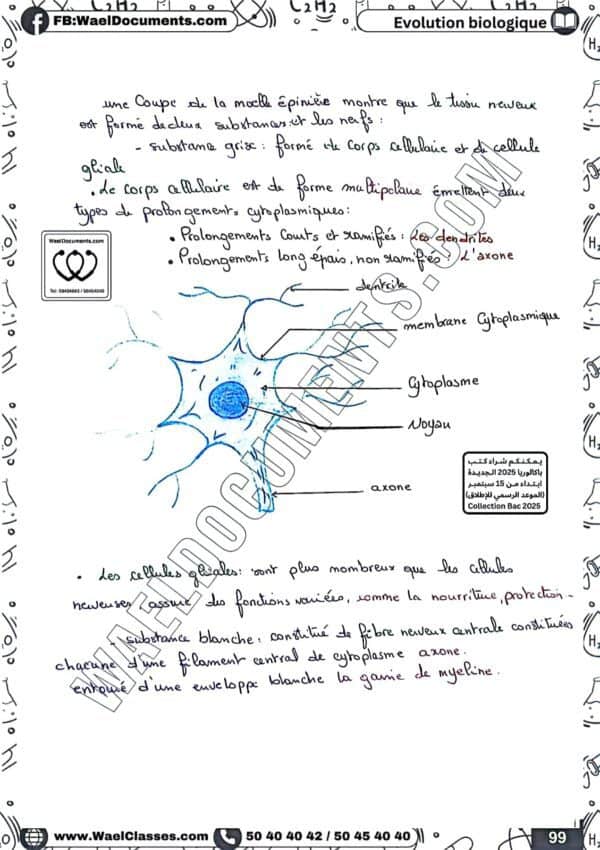 FB:WaelDocuments.com
C2H2
C2H2
Evolution biologique
une Coupe de la moelle épinière montre que le tissu nerveux
est formé de deux substances et les nerfs :
- substance grise : formé de corps cellulaire et de cellule
gliale
• Le corps cellulaire est de forme multipolaire émettent deux
types de prolongements cytoplasmiques :
• Prolongements Courts et ramifiés : les dendrites
• Prolongements long épais, non ramifiés : L'axone
WaelDocuments.com
dentrite
membrane Cytoplasmique
Cytoplasme
Noyau
axone
يمكنكم شراء كتب
باكالوريا 2025 الجديدة
ابتداء من 15 سبتمبر
(الموعد الرسمي للإطلاق)
Collection Bac 2025
• Les cellules gliales : sont plus nombreux que les cellules
nerveuses, assure des fonctions variées, comme la nourriture, protection -
- substance blanche : constitué de fibre nerveux centrale constituées
chacune d'une filament central de cytoplasme axone.
entouré d'une enveloppe blanche la gaine de myeline.
WAELDOCUMENTS.COM
www.WaelClasses.com
50 40 40 42 / 50 45 40 40
99